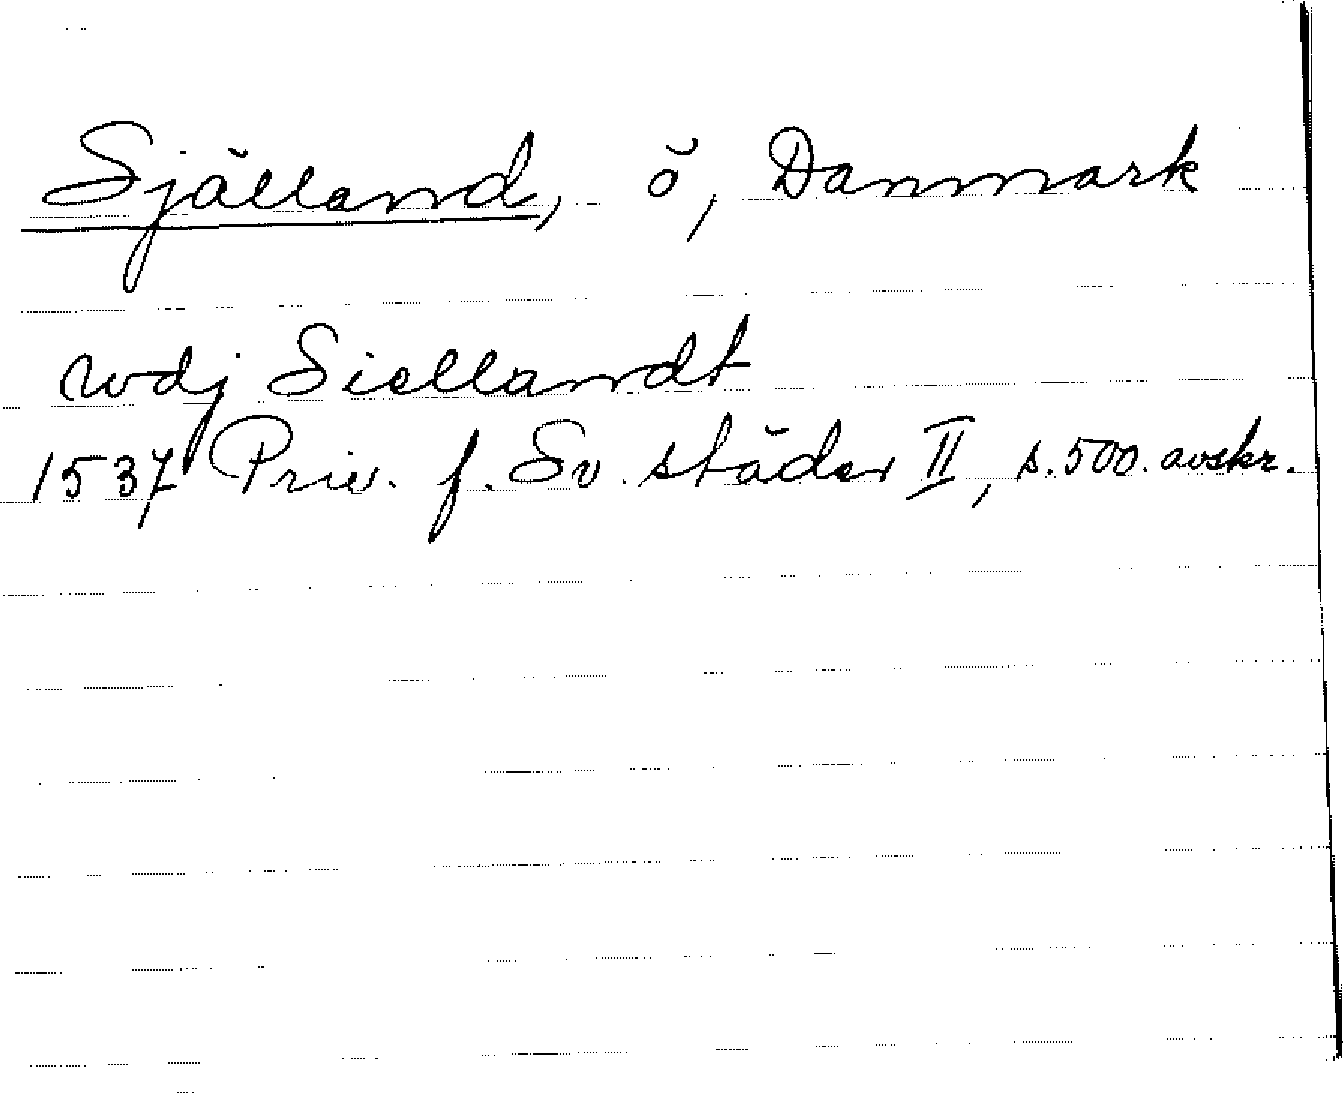 Själland, ö, Danmark
wdj Siellandt
1537 Priv. f. Sv. städer II, s. 500. avskr.